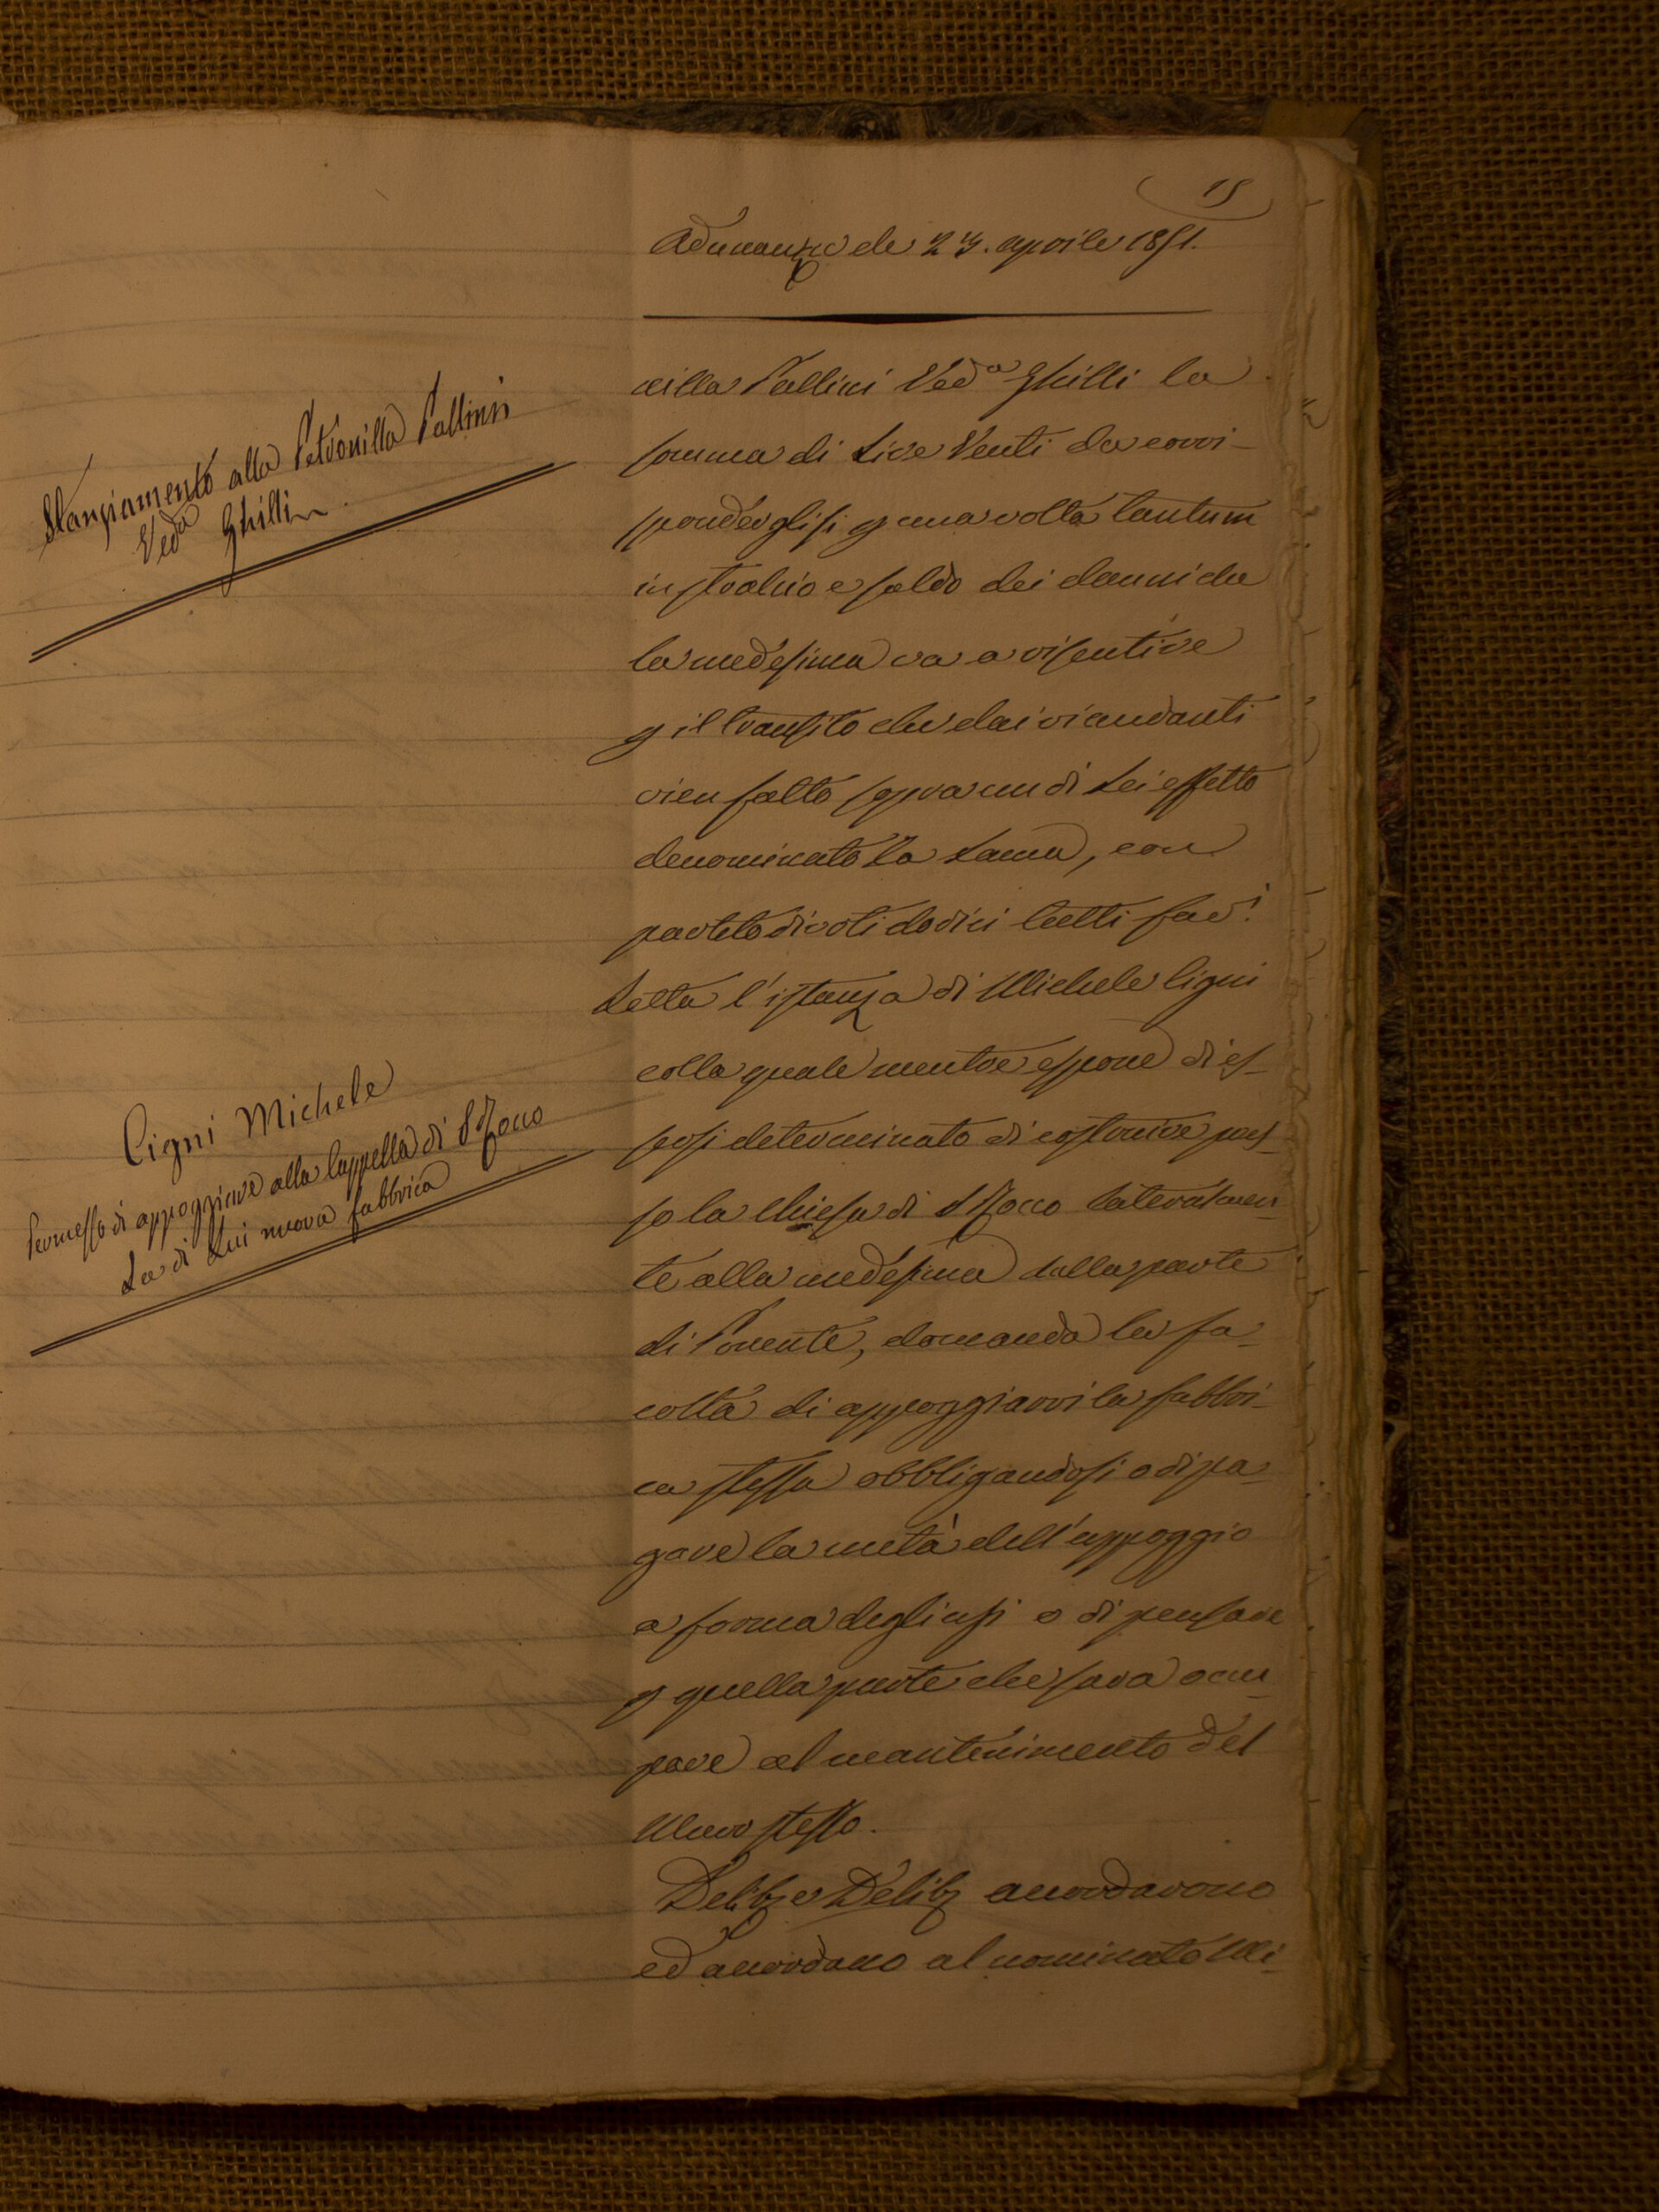 15
Adunanza de 23. aprile 1851.
Stanziamento alla Petronilla Pallini
Ved.a Ghilli
nilla Pallini Ved.a Ghilli la
somma di Lire Venti da corri-
sponderglisi p una volta tantum
in stralcio e saldo dei danni che
la medesima va a risentire
p il transito che dai viandanti
vien fatto sopra un di Lei effetto
denominato la Lama, con
partito di voti dodici tutti fav.i
Cigni Michele
Permesso di appoggiare alla Cappella di S Rocco
La di Lui nuova fabbrica
Letta l'istanza di Michele Cigni
colla quale mentre espone di es-
sersi determinato di costruire pres-
so la Chiesa di S Rocco lateralmen-
te alla medesima dalla parte
di Ponente, domanda la fa-
coltà di appoggiarvi la fabbri-
ca stessa obbligandosi o di pa-
gare la metà dell'appoggio
a forma degli usi o di pensare
p quella parte che sarà occu-
pare al mantenimento del
Muro stesso.
Delib e Delib accordarono
ed accordano al nominato Mi-